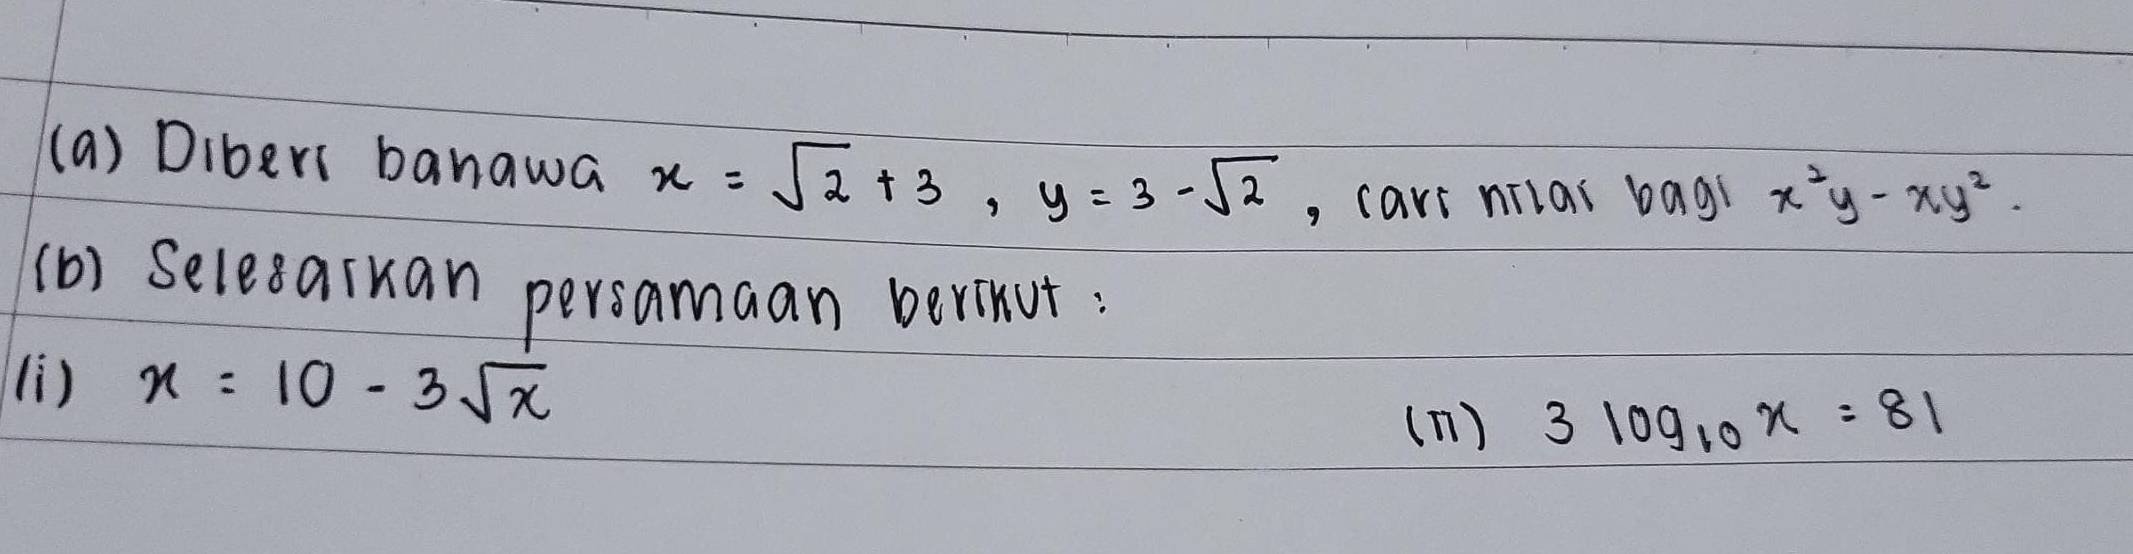 (a) Diberi bahawa x = √2 + 3 , y = 3 - √2 , cari nilai bagi x²y - xy² .
(b) Selesaikan persamaan berikut :
(i) x = 10 - 3√x (ii) 3 log₁₀ x = 81